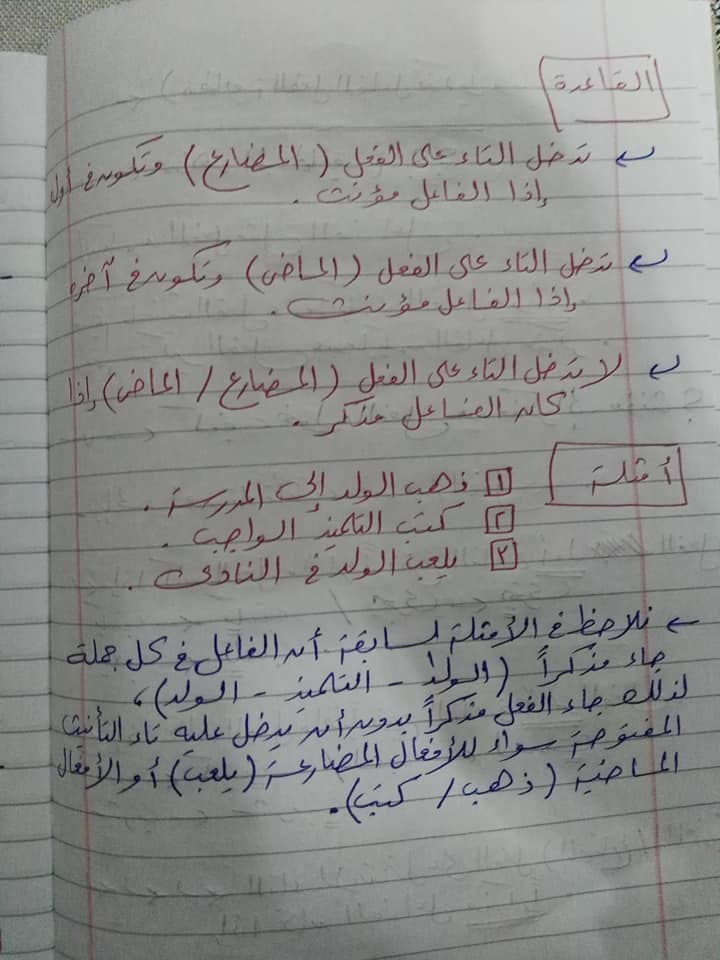 القاعدة
تدخل التاء على الفعل (المضارع) وتكون في أول
إذا الفاعل مؤنث.
تدخل التاء على الفعل (الماضي) وتكون في آخره
إذا الفاعل مؤنث.
لا تدخل التاء على الفعل (المضارع / الماضي) إذا
كان الفاعل مذكر.
أمثلة
١ ذهب الولد إلى المدرسة.
٢ كتب التلميذ الواجب.
٣ يلعب الولد في النادي.
نلاحظ في الأمثلة لسابقة أن الفاعل في كل جملة
جاء مذكراً (الولد - التلميذ - الولد)،
لذلك جاء الفعل مذكراً بدون أن يدخل عليه تاء التأنيث
المفتوحة سواء للأفعال المضارعة (يلعب) أو الأفعال
الماضية (ذهب / كتب).